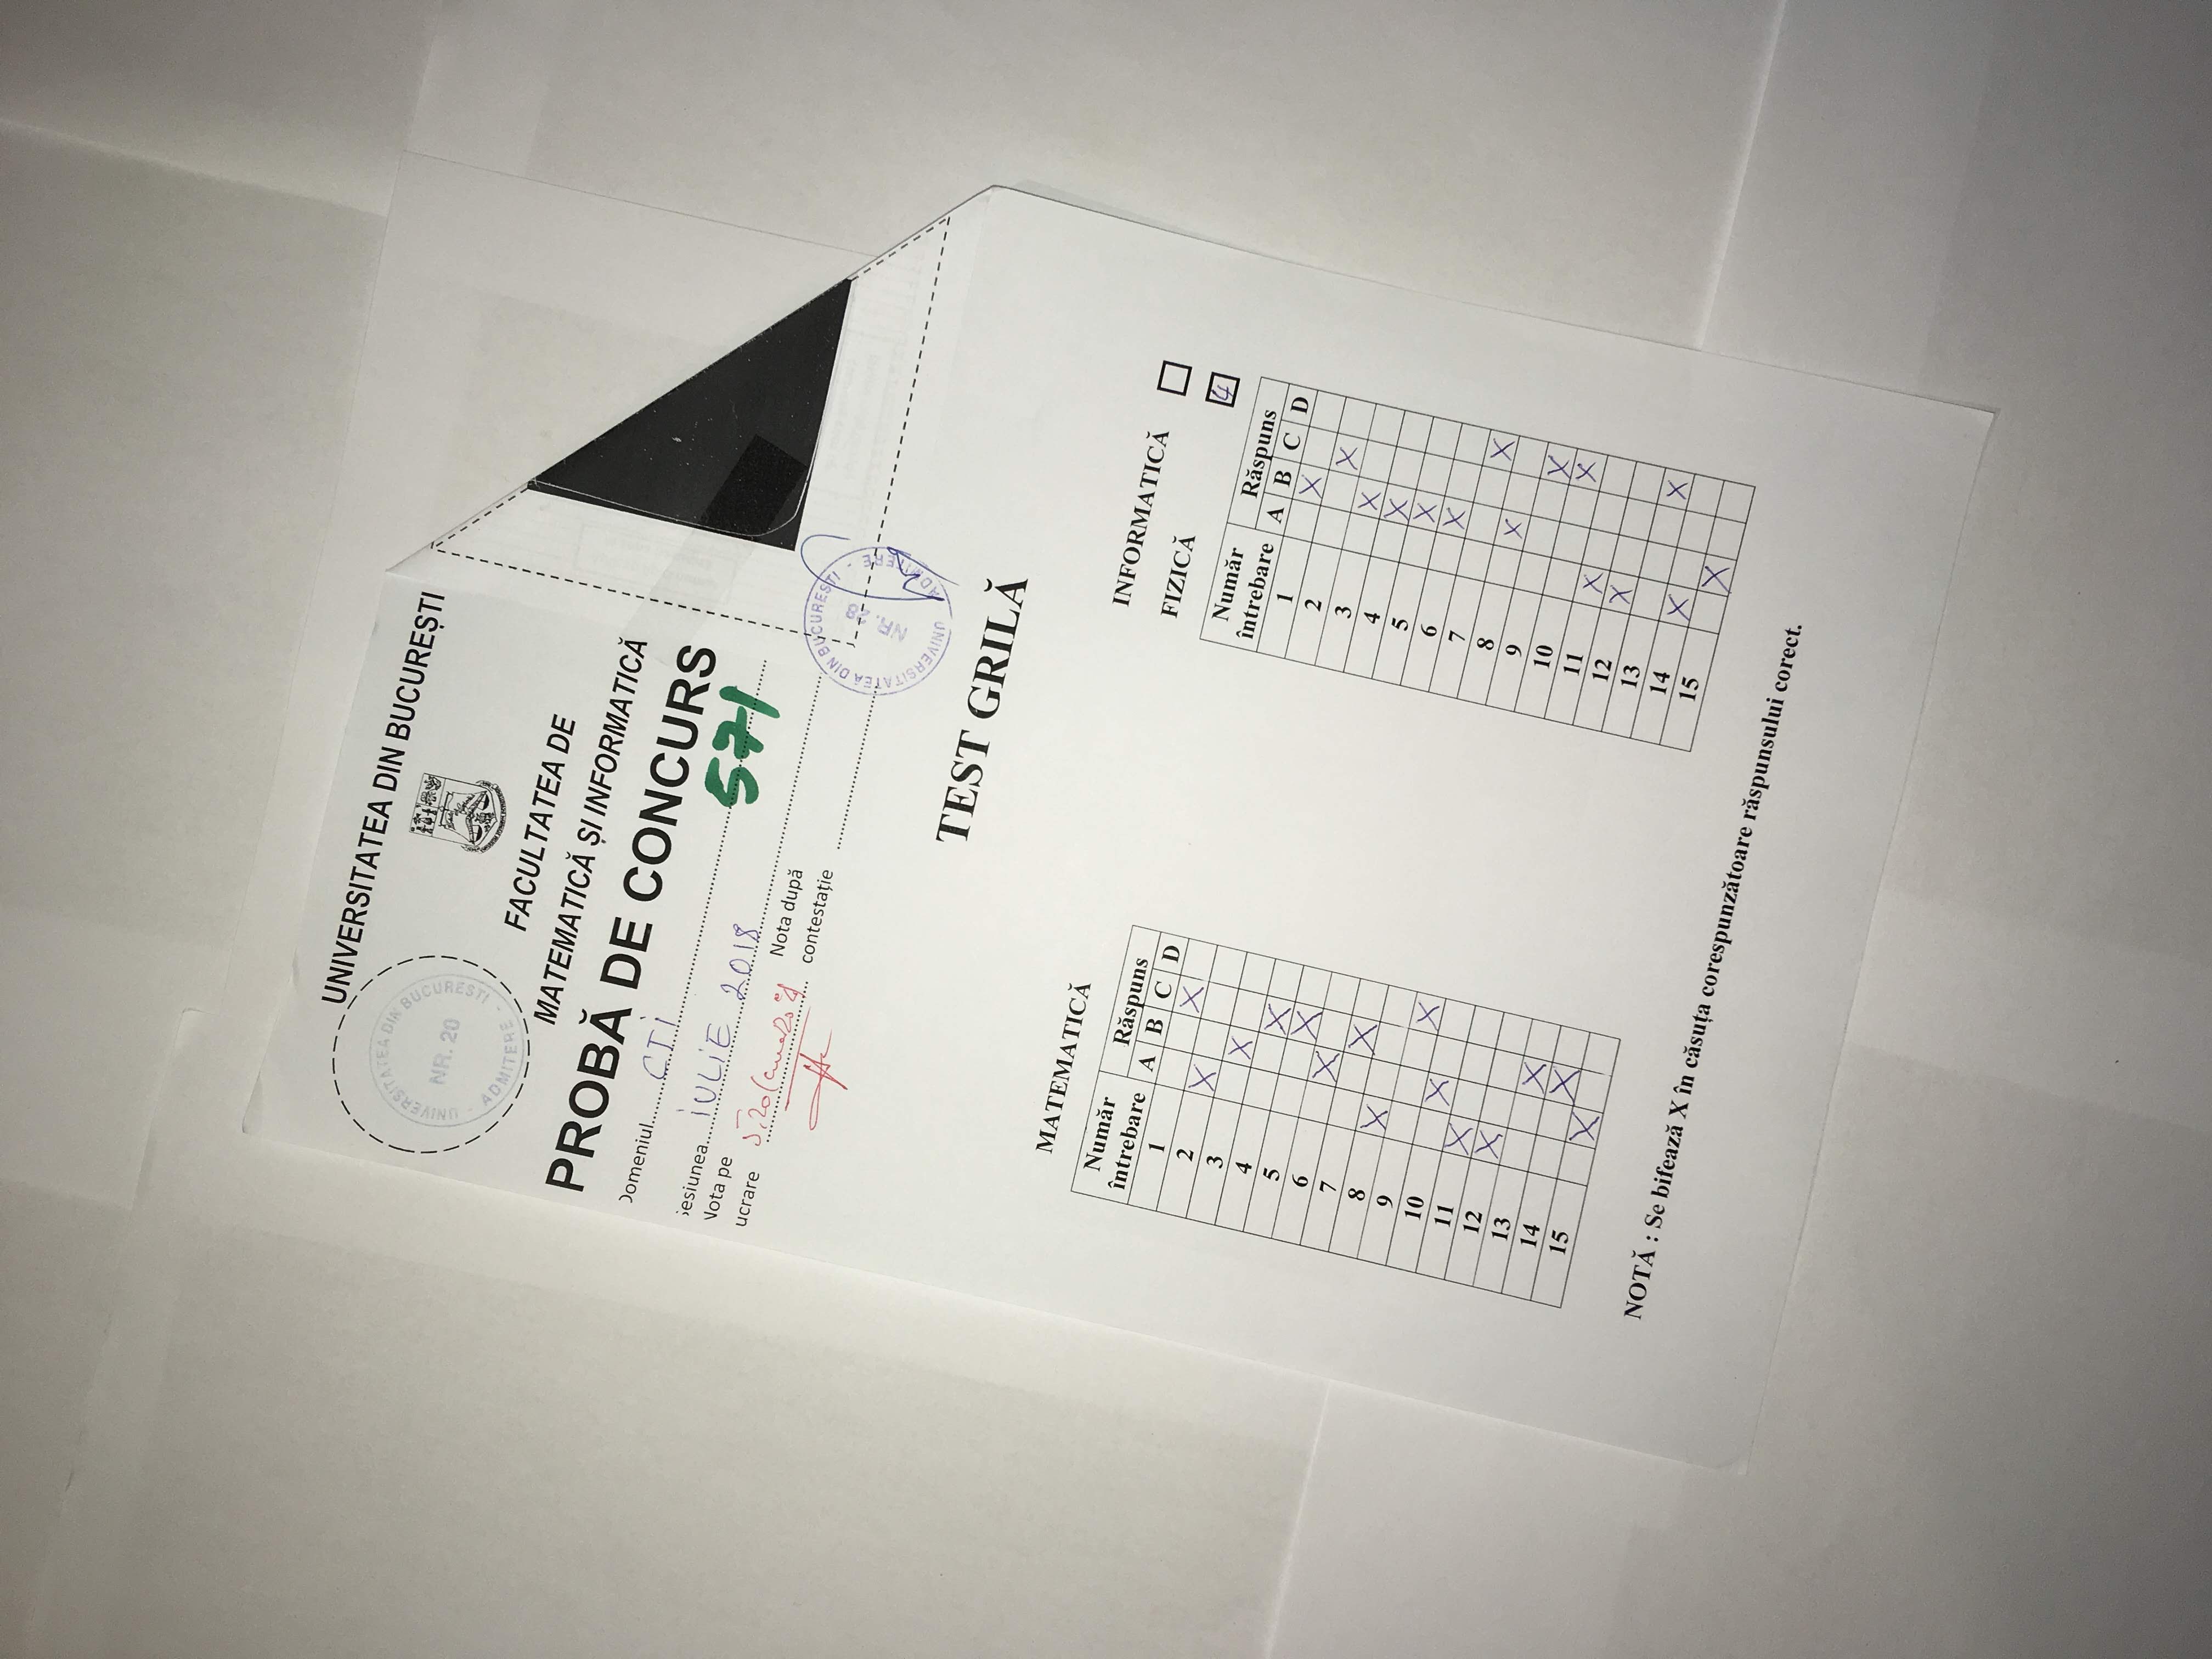 UNIVERSITATEA DIN BUCUREȘTI
UNIVERSITATEA DIN BUCURESTI - ADMITERE -
NR. 20
FACULTATEA DE
MATEMATICĂ ȘI INFORMATICĂ
PROBĂ DE CONCURS
Domeniul CTI
571
Sesiunea IULIE 2018
Nota pe
lucrare 5,20
Nota după
contestație
UNIVERSITATEA DIN BUCURESTI - ADMITERE
NR. 28
TEST GRILĂ
MATEMATICĂ
Număr întrebare Răspuns
A B C D
1 X
2 X
3 X
4 X
5 X
6 X
7 X
8 X
9 X
10 X
11 X
12 X
13 X
14 X
15 X
INFORMATICĂ
FIZICĂ 4
Număr întrebare Răspuns
A B C D
1 X
2 X
3 X
4 X
5 X
6 X
7 X
8 X
9 X
10 X
11 X X
12 X
13 X
14 X
15 X
NOTĂ : Se bifează X în căsuța corespunzătoare răspunsului corect.